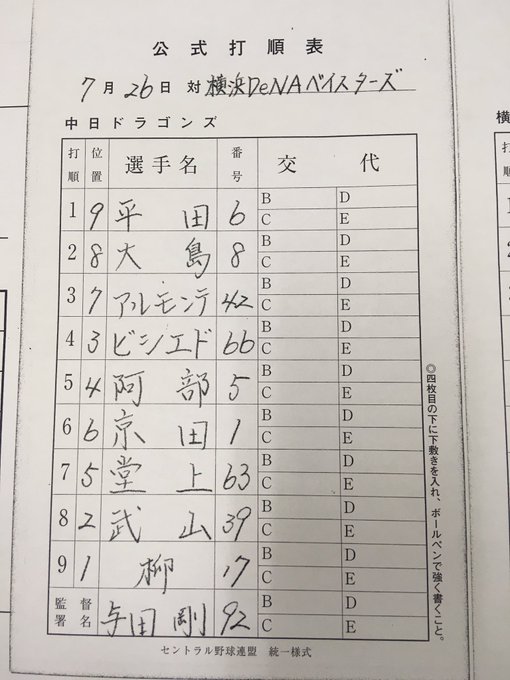 公式打順表
7月26日 対 横浜DeNAベイスターズ
中日ドラゴンズ
打順 位置 選手名 番号 交代
1 9 平田 6 B D C E
2 8 大島 8 B D C E
3 7 アルモンテ 42 B D C E
4 3 ビシエド 66 B D C E
5 4 阿部 5 B D C E
6 6 京田 1 B D C E
7 5 堂上 63 B D C E
8 2 武山 39 B D C E
9 1 柳 17 B D C E
監督署名 与田剛 92 B D C E
◎四枚目の下に下敷きを入れ、ボールペンで強く書くこと。
セントラル野球連盟 統一様式
横
打順
1
2